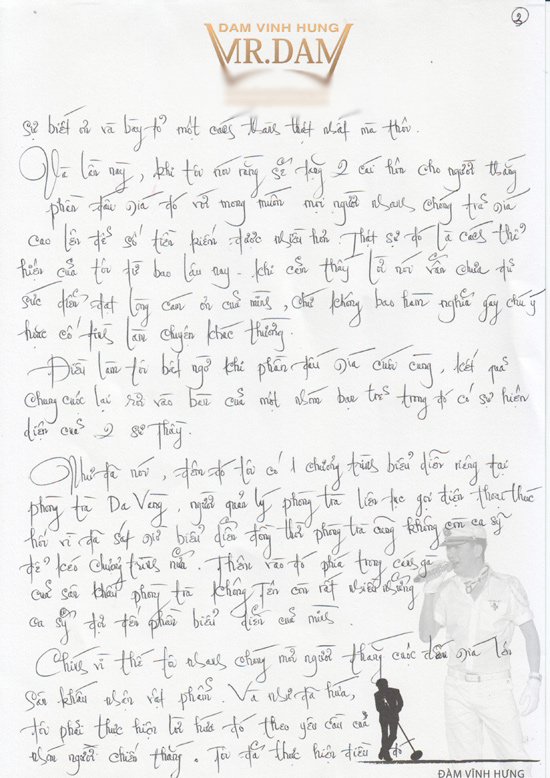 3
DAM VINH HUNG
MR.DAM
sự biết ơn và bày tỏ một cách thành thật nhất mà thôi.
Và lần này, khi tôi nói rằng sẽ tặng 2 cái hôn cho người thắng
phần đấu giá đó với mong muốn mọi người nhanh chóng trả giá
cao lên để số tiền kiếm được nhiều hơn. Thật sự đó là cách thể
hiện của tôi từ bao lâu nay - khi cảm thấy lời nói vẫn chưa đủ
sức diễn đạt lòng cám ơn của mình, chứ không bao hàm nghĩa gây chú ý
hoặc cố tình làm chuyện khác thường.
Điều làm tôi bất ngờ khi phần đấu giá cuối cùng, kết quả
chung cuộc lại rơi vào bàn của một nhóm bạn trẻ trong đó có sự hiện
diện của 2 sư thầy.
Như đã nói, đêm đó tôi có 1 chương trình biểu diễn riêng tại
phòng trà Da Vàng, người quản lý phòng trà liên tục gọi điện thoại thúc
hối vì đã sát giờ biểu diễn đồng thời phòng trà cũng không còn ca sỹ
để kéo chương trình nữa. Thêm vào đó phía trong cánh gà
của sân khấu phòng trà Không Tên còn rất nhiều những
ca sỹ đợi đến phần biểu diễn của mình.
Chính vì thế tôi nhanh chóng mời người thắng cuộc đấu giá lên
sân khấu nhận vật phẩm. Và như đã hứa,
tôi phải thực hiện lời hứa đó theo yêu cầu của
nhóm người chiến thắng. Tôi đã thực hiện điều đó
ĐÀM VĨNH HƯNG